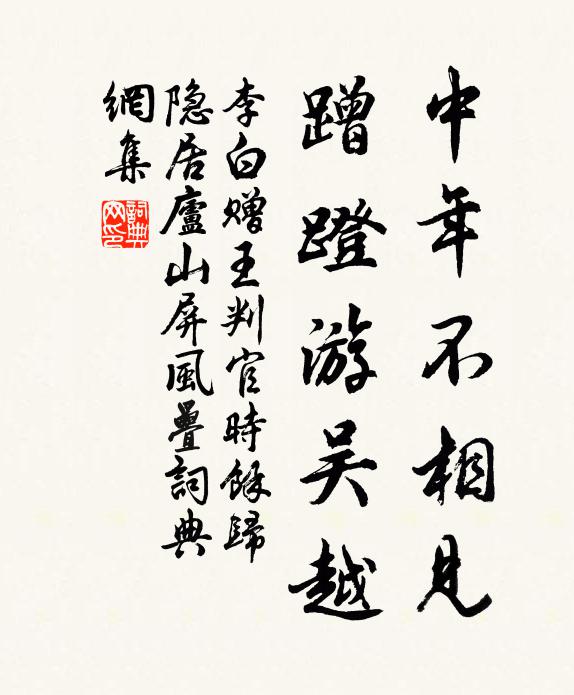 中年不相見
蹭蹬游吴越
李白赠王判官時餘歸
隐居廬山屏風疊詞典
網集
詞典网印